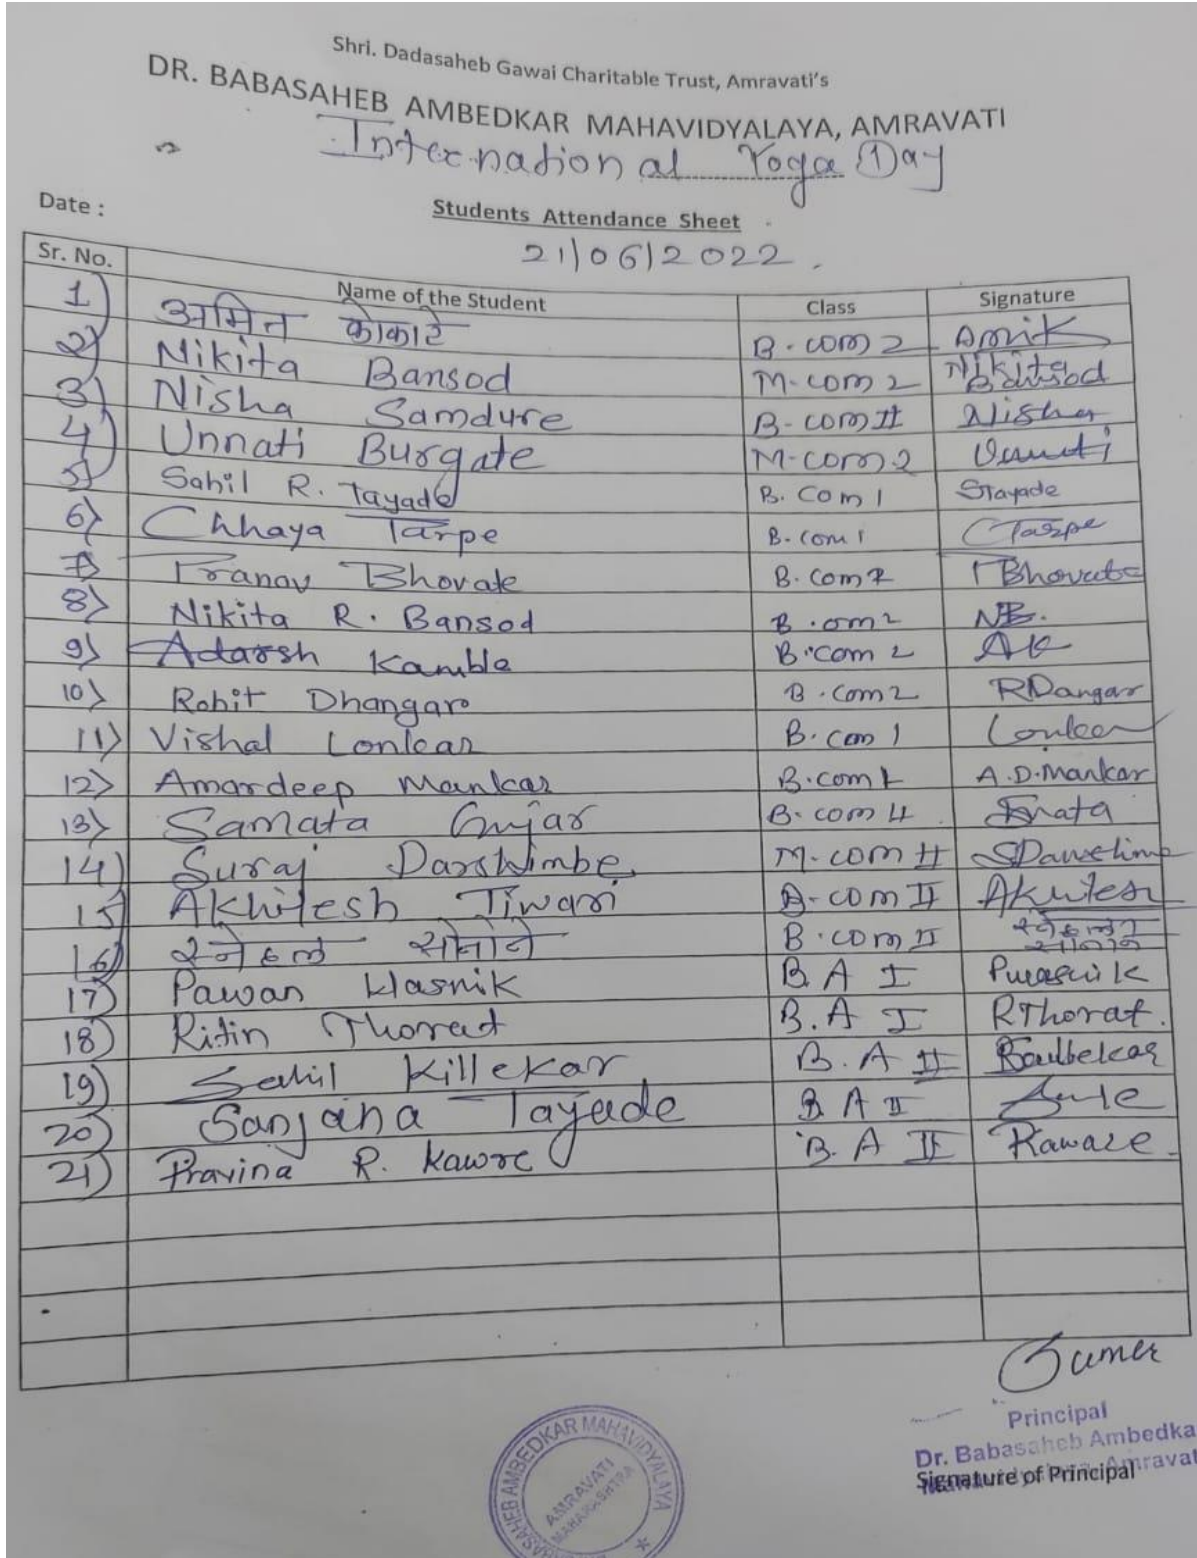 Shri. Dadasaheb Gawai Charitable Trust, Amravati's
DR. BABASAHEB AMBEDKAR MAHAVIDYALAYA, AMRAVATI
International Yoga Day
Date :
Students Attendance Sheet
21/06/2022
Sr. No. Name of the Student Class Signature
1) अमित कोकाटे B.com 2
2) Nikita Bansod M.com 2 Nikita Bansod
3) Nisha Samdure B-com II Nisha
4) Unnati Burgate M-com 2
5) Sahil R. Tayade B. Com 1 STayade
6) Chhaya Tarpe B.com 1 CTarpe
7) Pranav Bhovate B.com 2 PBhovate
8) Nikita R. Bansod B.om 2 NB.
9) Adarsh Kamble B.com 2 AK
10) Rohit Dhangar B.com2 RDangar
11) Vishal Lonkar B.com 1 Lonkar
12) Amardeep Mankar B.com 1 A.D.Mankar
13) Samata Gujar B.com
14) Suraj M.com II
15) Akhilesh Tiwari B-com II Akhilesh
16) B.com II
17) Pawan Wasnik B.A I PWasnik
18) Ritin Thorat B.A I RThorat.
19) Sahil Killekar B.A II
20) Sanjana Tayade B A II
21) Pravina R. Kawre B.A II
Principal
Dr. Babasaheb Ambedka
Signature of Principal
BABASAHEB AMBEDKAR MAHAVIDYALAYA
AMRAVATI
MAHARASHTRA